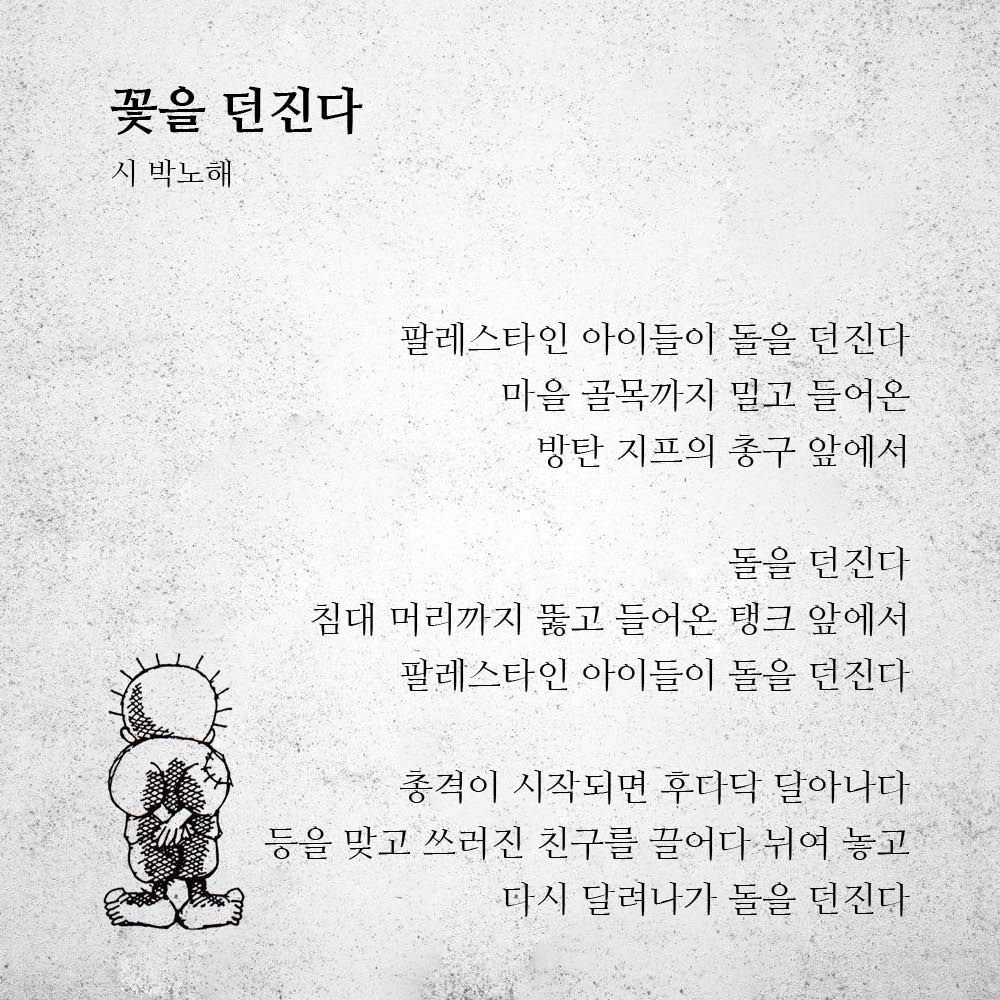 꽃을 던진다
시 박노해
팔레스타인 아이들이 돌을 던진다
마을 골목까지 밀고 들어온
방탄 지프의 총구 앞에서
돌을 던진다
침대 머리까지 뚫고 들어온 탱크 앞에서
팔레스타인 아이들이 돌을 던진다
총격이 시작되면 후다닥 달아나다
등을 맞고 쓰러진 친구를 끌어다 뉘여 놓고
다시 달려나가 돌을 던진다